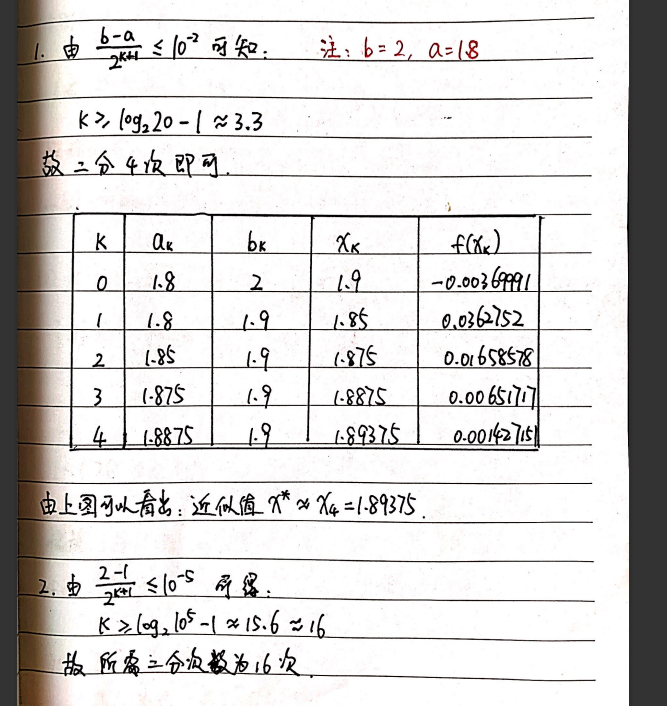 1. 由 (b-a)/2^(k+1) ≤ 10^-2 可知: 注: b=2, a=1.8
K ≥ log₂20 - 1 ≈ 3.3
故二分4次即可.
K aₖ bₖ xₖ f(xₖ)
0 1.8 2 1.9 -0.00369991
1 1.8 1.9 1.85 0.0362752
2 1.85 1.9 1.875 0.01658578
3 1.875 1.9 1.8875 0.00651717
4 1.8875 1.9 1.89375 0.001427151
由上图可以看出: 近似值 x* ≈ x₄ = 1.89375.
2. 由 (2-1)/2^(k+1) ≤ 10^-5 可得:
K ≥ log₂10^5 - 1 ≈ 15.6 ≈ 16
故所需二分次数为16次.